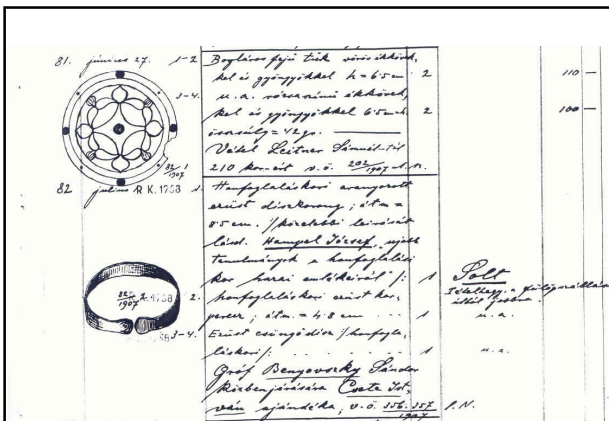 81. június 27. 1-2 Bogláros fejű tűk vörös ékkövek,
kel és gyöngyökkel h = 6.5 cm 2 110 —
3-4. u. a. rózsaszínű ékkövek,
kel és gyöngyökkel 6.5 cm h. 2 100 —
összsúly = 42 gr.
82/1907 1
Vétel Leitner Sámuel-től
210 kor-ért v. ö. 202/1907 sz. n.
82 július R.K. 1758 1. Honfoglaláskori aranyozott
ezüst díszkorong; átm =
8.5 cm. /közelebbi leírását
lásd. Hampel József újabb
tanulmányok a honfoglalási
kor hazai emlékeiről /: 1 Solt
Tételhegy, a fülöpszállási
82/1907 2. 2. honfoglaláskori ezüst kar,
úttól jobbra.
perec; átm. = 4.8 cm 1 u. a.
3-4. Ezüst csüngődísz /honfogla,
láskori/: 1 u. a.
Gróf Benyovszky Sándor
közbenjárására Csete Ist,
ván ajándéka, v. ö. 356. 357/1907 P. N.